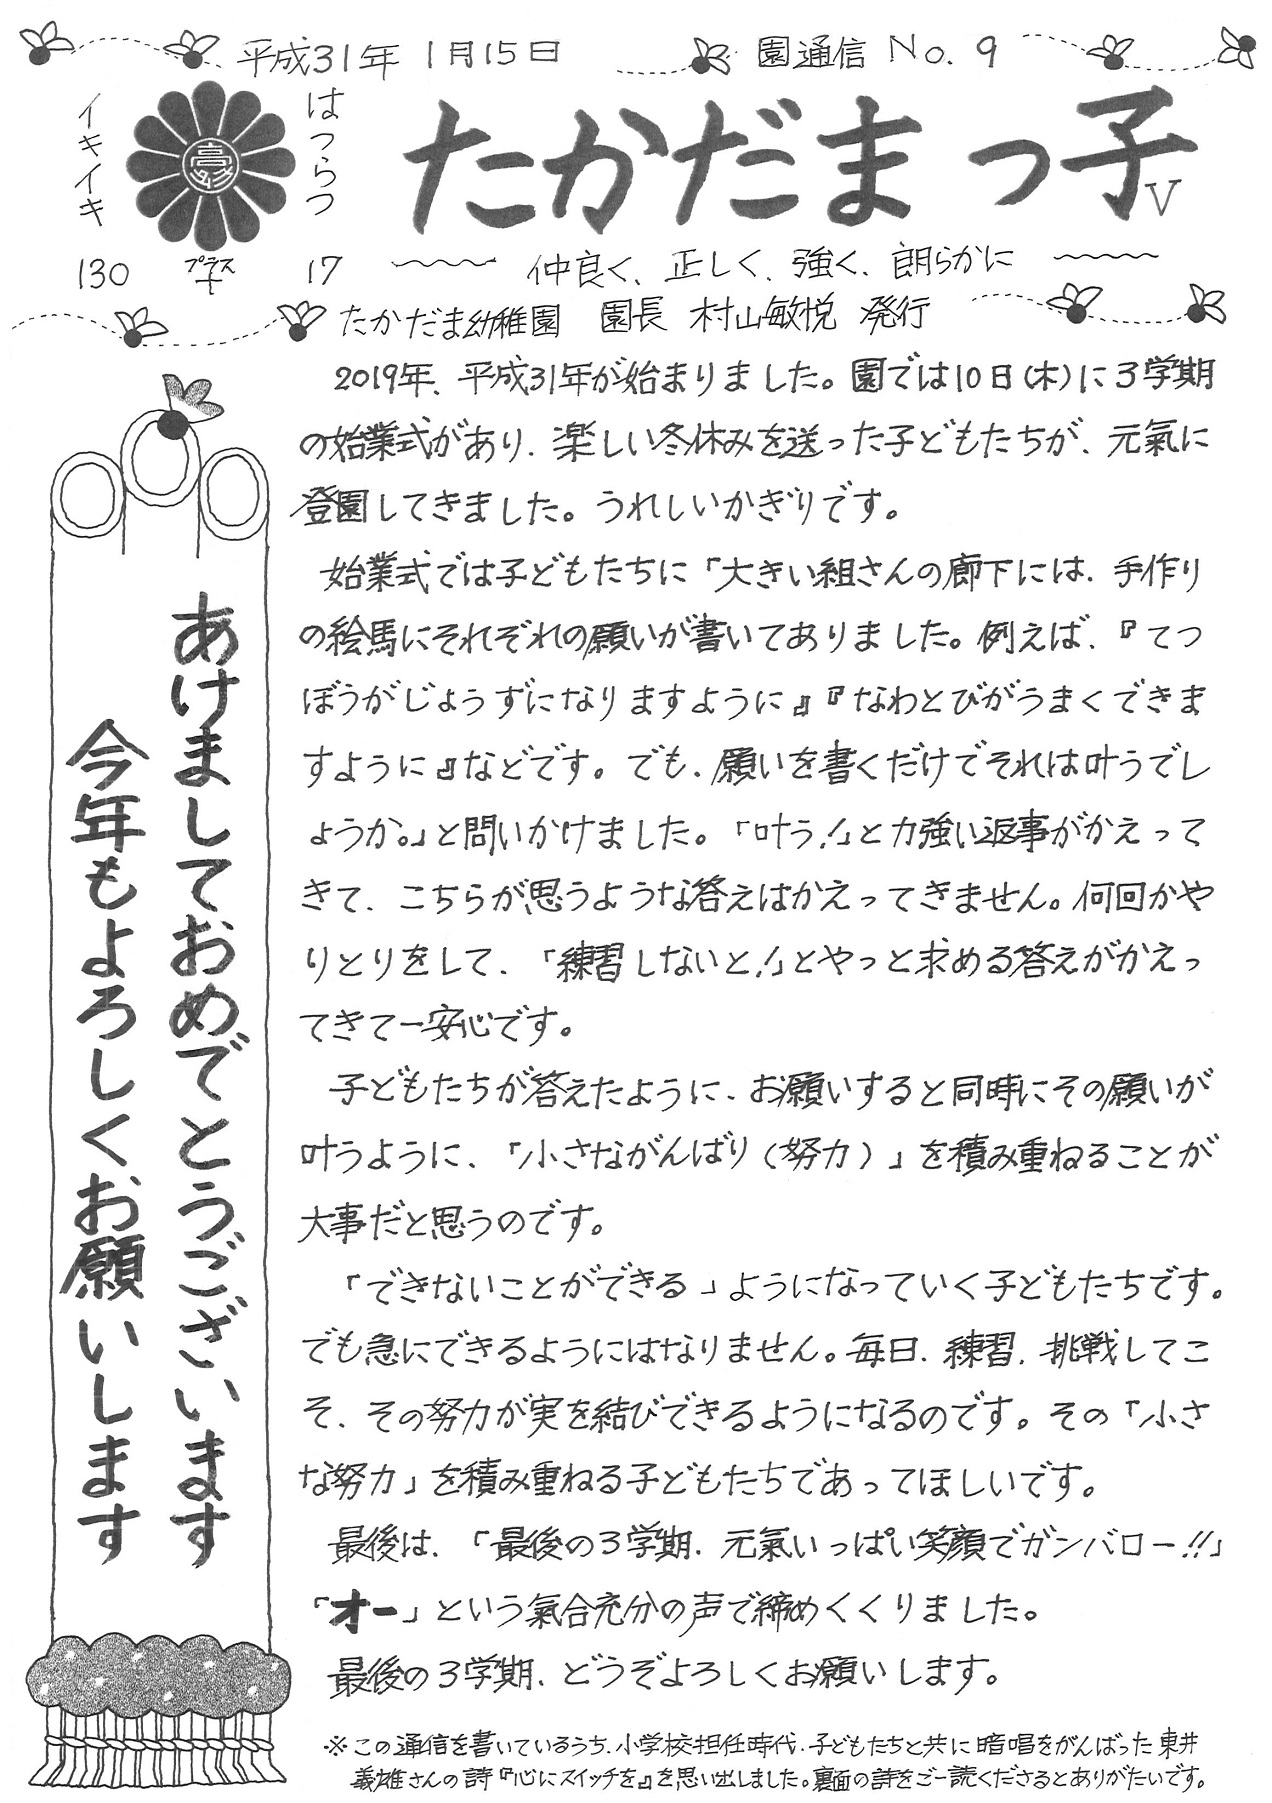 平成31年 1月15日 園通信 No. 9
イキイキ
はつらつ
たかだまっ子V
130 プラス + 17
仲良く、正しく、強く、朗らかに
たかだま幼稚園 園長 村山敏悦 発行
あけましておめでとうございます
今年もよろしくお願いします
2019年、平成31年が始まりました。園では10日(木)に3学期
の始業式があり、楽しい冬休みを送った子どもたちが、元氣に
登園してきました。うれしいかぎりです。
始業式では子どもたちに「大きい組さんの廊下には、手作り
の絵馬にそれぞれの願いが書いてありました。例えば、『てつ
ぼうがじょうずになりますように』『なわとびがうまくできま
すように』などです。でも、願いを書くだけでそれは叶うでし
ょうか。」と問いかけました。「叶う!」と力強い返事がかえって
きて、こちらが思うような答えはかえってきません。何回かや
りとりをして、「練習しないと!」とやっと求める答えがかえっ
てきて一安心です。
子どもたちが答えたように、お願いすると同時にその願いが
叶うように、「小さながんばり(努力)」を積み重ねることが
大事だと思うのです。
「できないことができる」ようになっていく子どもたちです。
でも急にできるようにはなりません。毎日、練習、挑戦してこ
そ、その努力が実を結びできるようになるのです。その「小さ
な努力」を積み重ねる子どもたちであってほしいです。
最後は、「最後の3学期、元氣いっぱい笑顔でガンバロー!!」
「オー」という氣合充分の声で締めくくりました。
最後の3学期、どうぞよろしくお願いします。
※この通信を書いているうち、小学校担任時代、子どもたちと共に暗唱をがんばった東井
義雄さんの詩『心にスイッチを』を思い出しました。裏面の詩をご一読くださるとありがたいです。